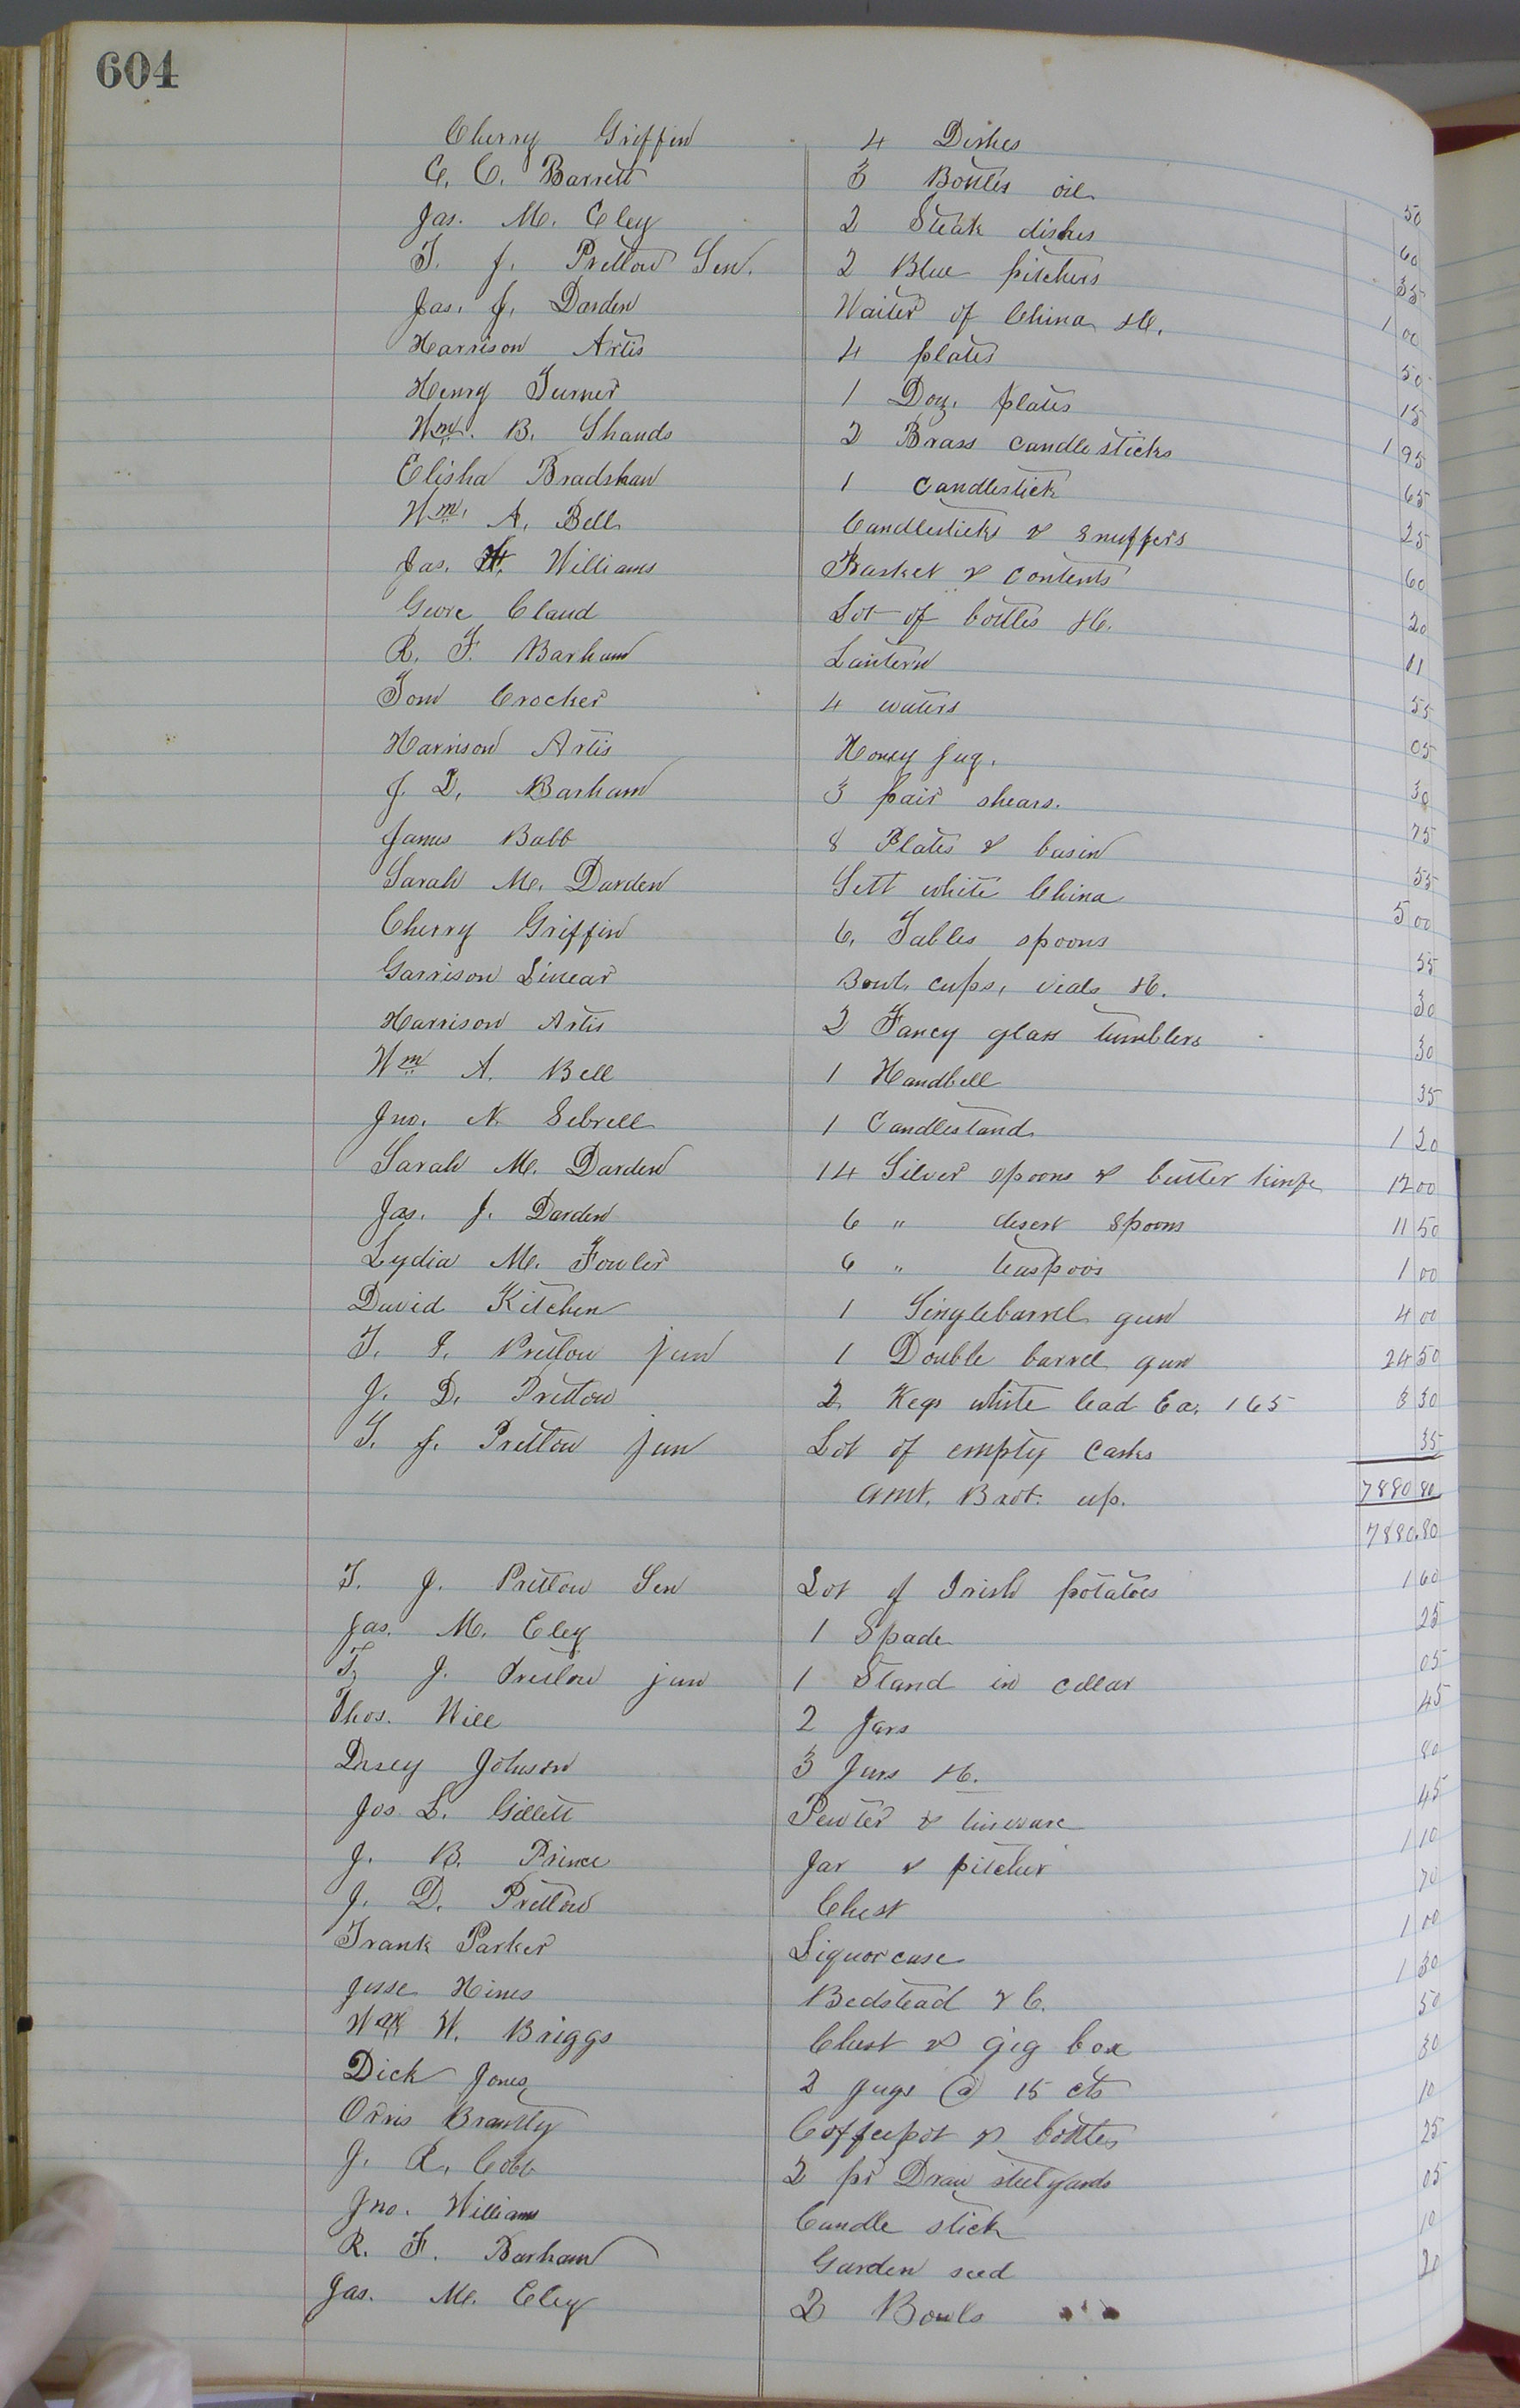 604
Cherry Griffin 4 Dishes 50
C. C. Barrett 3 Bottles oil 60
Jas. M. Eley 2 Steak dishes 35
T. J. Pretlow Sen. 2 Blue pitchers 1 00
Jas. J. Darden Waiter of China &C. 50
Harrison Artis 4 plates 15
Henry Turner 1 Doz. plates 1 95
Wm. B. Shands 2 Brass candlesticks 65
Elisha Bradshaw 1 Candlestick 25
Wm. A. Bell Candlesticks & snuffers 60
Jas. H. Williams Basket & contents 20
Geore Claud Lot of bottles &C. 11
R. F. Barham Lantern 55
Tom Crocker 4 waters 05
Harrison Artis Honey jug. 30
J. D. Barham 3 pair shears. 75
James Babb 8 Plates & basin 55
Sarah M. Darden Sett white China 5 00
Cherry Griffin 6, Tables spoons 55
Garrison Linear Bowl, cups, vials &C. 30
Harrison Artis 2 Fancy glass tumblers 30
Wm A. Bell 1 Handbell 35
Jno. N. Sebrell 1 Candlestand 1 20
Sarah M. Darden 14 Silver spoons & butter kinfe 12 00
Jas. J. Darden 6 " desert spoons 11 50
Lydia M. Fowler 6 " teaspoos 1 00
David Kitchen 1 Singlebarrel gun 4 00
T. J. Pretlow jun 1 Double barrel gun 24 50
J. D. Pretlow 2 Kegs white lead Ea. 165 3 30
T. J. Pretlow jun Lot of empty casks 35
amt. Brot. up. 7880 80
7880.80
T. J. Pretlow Sen Lot of Irish potatoes 1 60
Jas. M. Eley 1 Spade 25
T. J. Pretlow jun 1 Stand in cellar 05
Thos. Will 2 Jars 45
Dasey Johnson 3 Jars &C. 80
Jos L. Gillett Pewter & tinware 45
J. B. Prince Jar & pitcher 1 10
J. D. Pretlow Chest 70
Frank Parker Liquor case 1 00
Jesse Hines Bedstead & C. 1 30
Wm W. Briggs Chest & gig box 50
Dick Jones 2 Jugs @ 15 cts 30
Orris Brantly Coffeepot & bottles 10
J. R. Cobb 2 pr Draw steelyards 25
Jno. Williams Candle stick 05
R. F. Barham Garden seed 10
Jas. M. Eley 2 Bowls 20